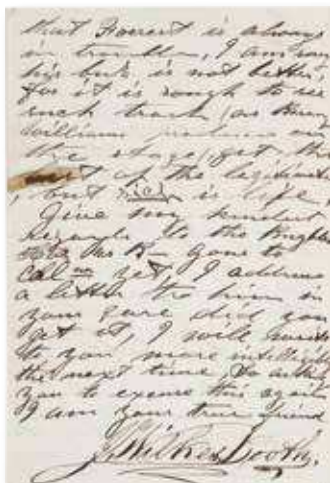 that Forrest is always
in trouble, I am sorry
his but is not better,
for it is rough to see
such trash as
William on
the stage, get the
of the legitimate
, but sich is life,
Give my kindest
regards to the Knights
Mr K gone to
Cal yet, I address
a letter to him in
your care did you
get it, I will write
to you more
the next time so
you to excuse this again
I am your true friend
J. Wilkes Booth.